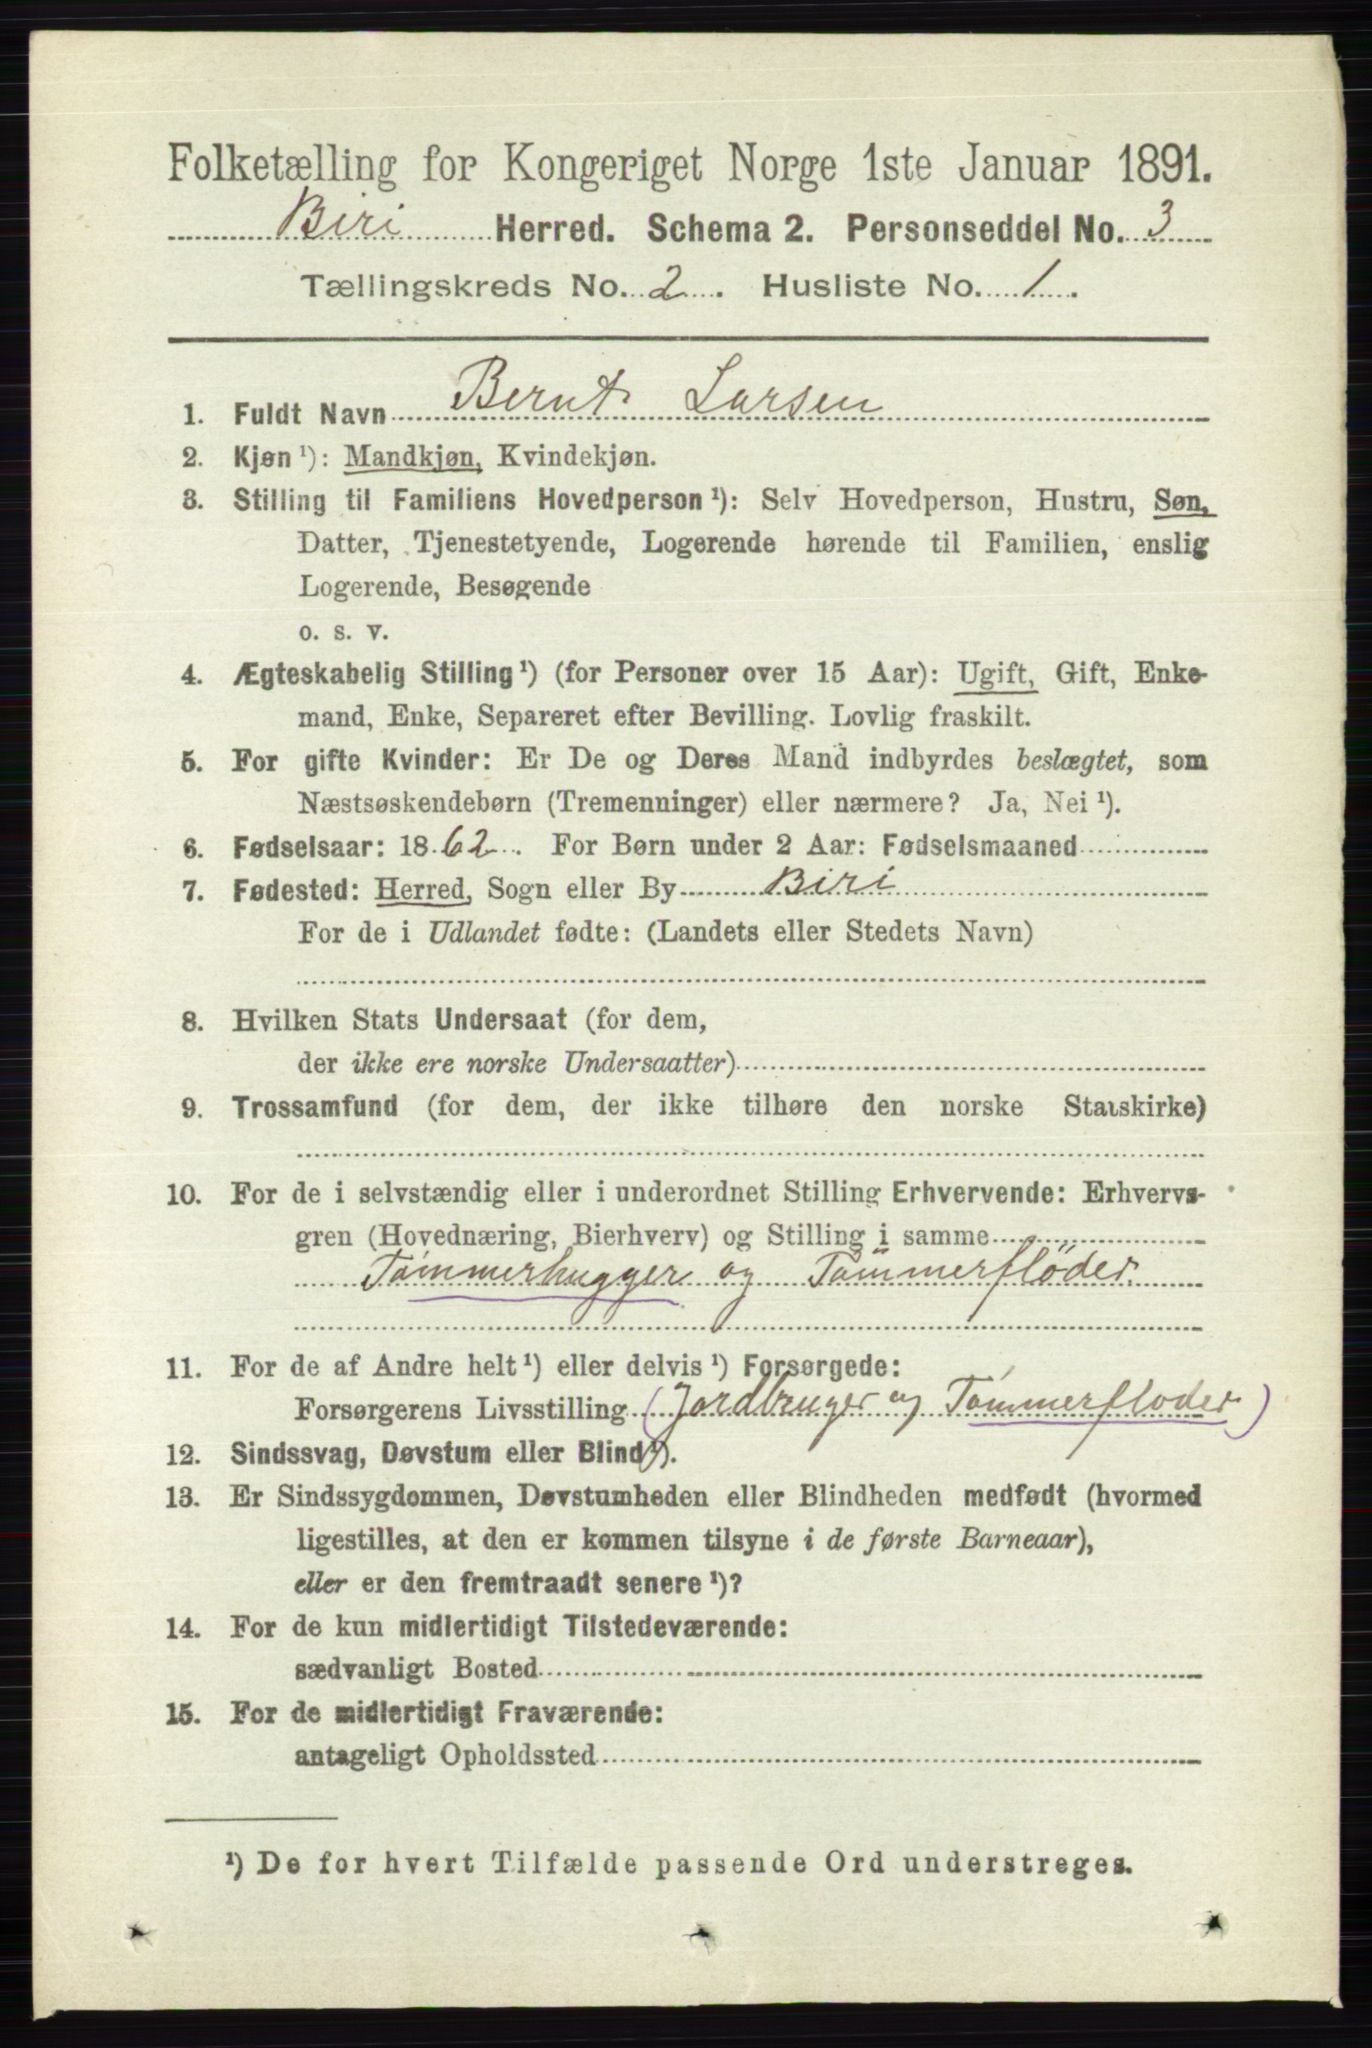 Folketælling for Kongeriget Norge 1ste Januar 1891.
Biri Herred. Schema 2. Personseddel No. 3
Tællingskreds No. 2. Husliste No. 1.
1. Fuldt Navn Bernt Larsen
2. Kjøn ¹): Mandkjøn, Kvindekjøn.
3. Stilling til Familiens Hovedperson ¹): Selv Hovedperson, Hustru, Søn,
Datter, Tjenestetyende, Logerende hørende til Familien, enslig
Logerende, Besøgende
o. s. v.
4. Ægteskabelig Stilling ¹) (for Personer over 15 Aar): Ugift, Gift, Enke-
mand, Enke, Separeret efter Bevilling. Lovlig fraskilt.
5. For gifte Kvinder: Er De og Deres Mand indbyrdes beslægtet, som
Næstsøskendebørn (Tremenninger) eller nærmere? Ja, Nei ¹).
6. Fødselsaar: 1862. For Børn under 2 Aar: Fødselsmaaned
7. Fødested: Herred, Sogn eller By Biri
For de i Udlandet fødte: (Landets eller Stedets Navn)
8. Hvilken Stats Undersaat (for dem,
der ikke ere norske Undersaatter)
9. Trossamfund (for dem, der ikke tilhøre den norske Statskirke)
10. For de i selvstændig eller i underordnet Stilling Erhvervende: Erhvervs-
gren (Hovednæring, Bierhverv) og Stilling i samme
Tømmerhugger og Tømmerfløder
11. For de af Andre helt ¹) eller delvis ¹) Forsørgede:
Forsørgerens Livsstilling (Jordbruger og Tømmerfløder)
12. Sindssvag, Døvstum eller Blind ¹).
13. Er Sindssygdommen, Døvstumheden eller Blindheden medfødt (hvormed
ligestilles, at den er kommen tilsyne i de første Barneaar),
eller er den fremtraadt senere ¹)?
14. For de kun midlertidigt Tilstedeværende:
sædvanligt Bosted
15. For de midlertidigt Fraværende:
antageligt Opholdssted
¹) De for hvert Tilfælde passende Ord understreges.